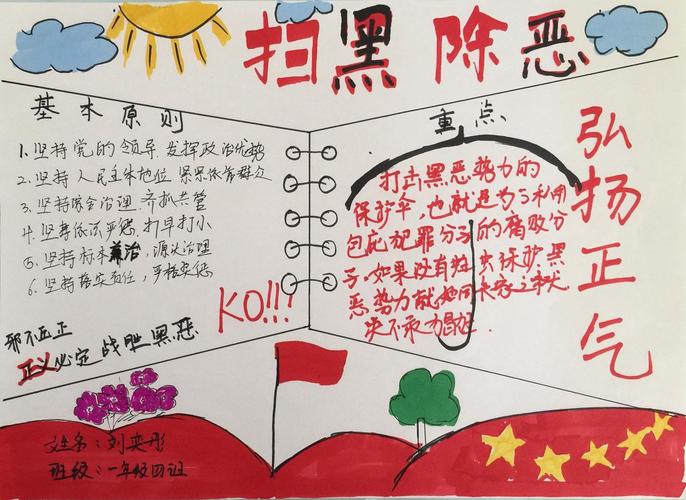 扫黑除恶
基本原则
1. 坚持党的领导，发挥政治优势
2. 坚持人民主体地位，紧紧依靠群众
3. 坚持综合治理、齐抓共管
4. 坚持依法严惩、打早打小
5. 坚持标本兼治，源头治理
6. 坚持落实责任，严格实惩
KO!!!
邪不压正
正义必定战胜黑恶
重点
打击黑恶势力的
保护伞，也就是为了利用
包庇犯罪分子的腐败分
子。如果没有 保护黑
恶势力就如同
决不
弘扬正气
姓名：刘奕彤
班级：一年级四班